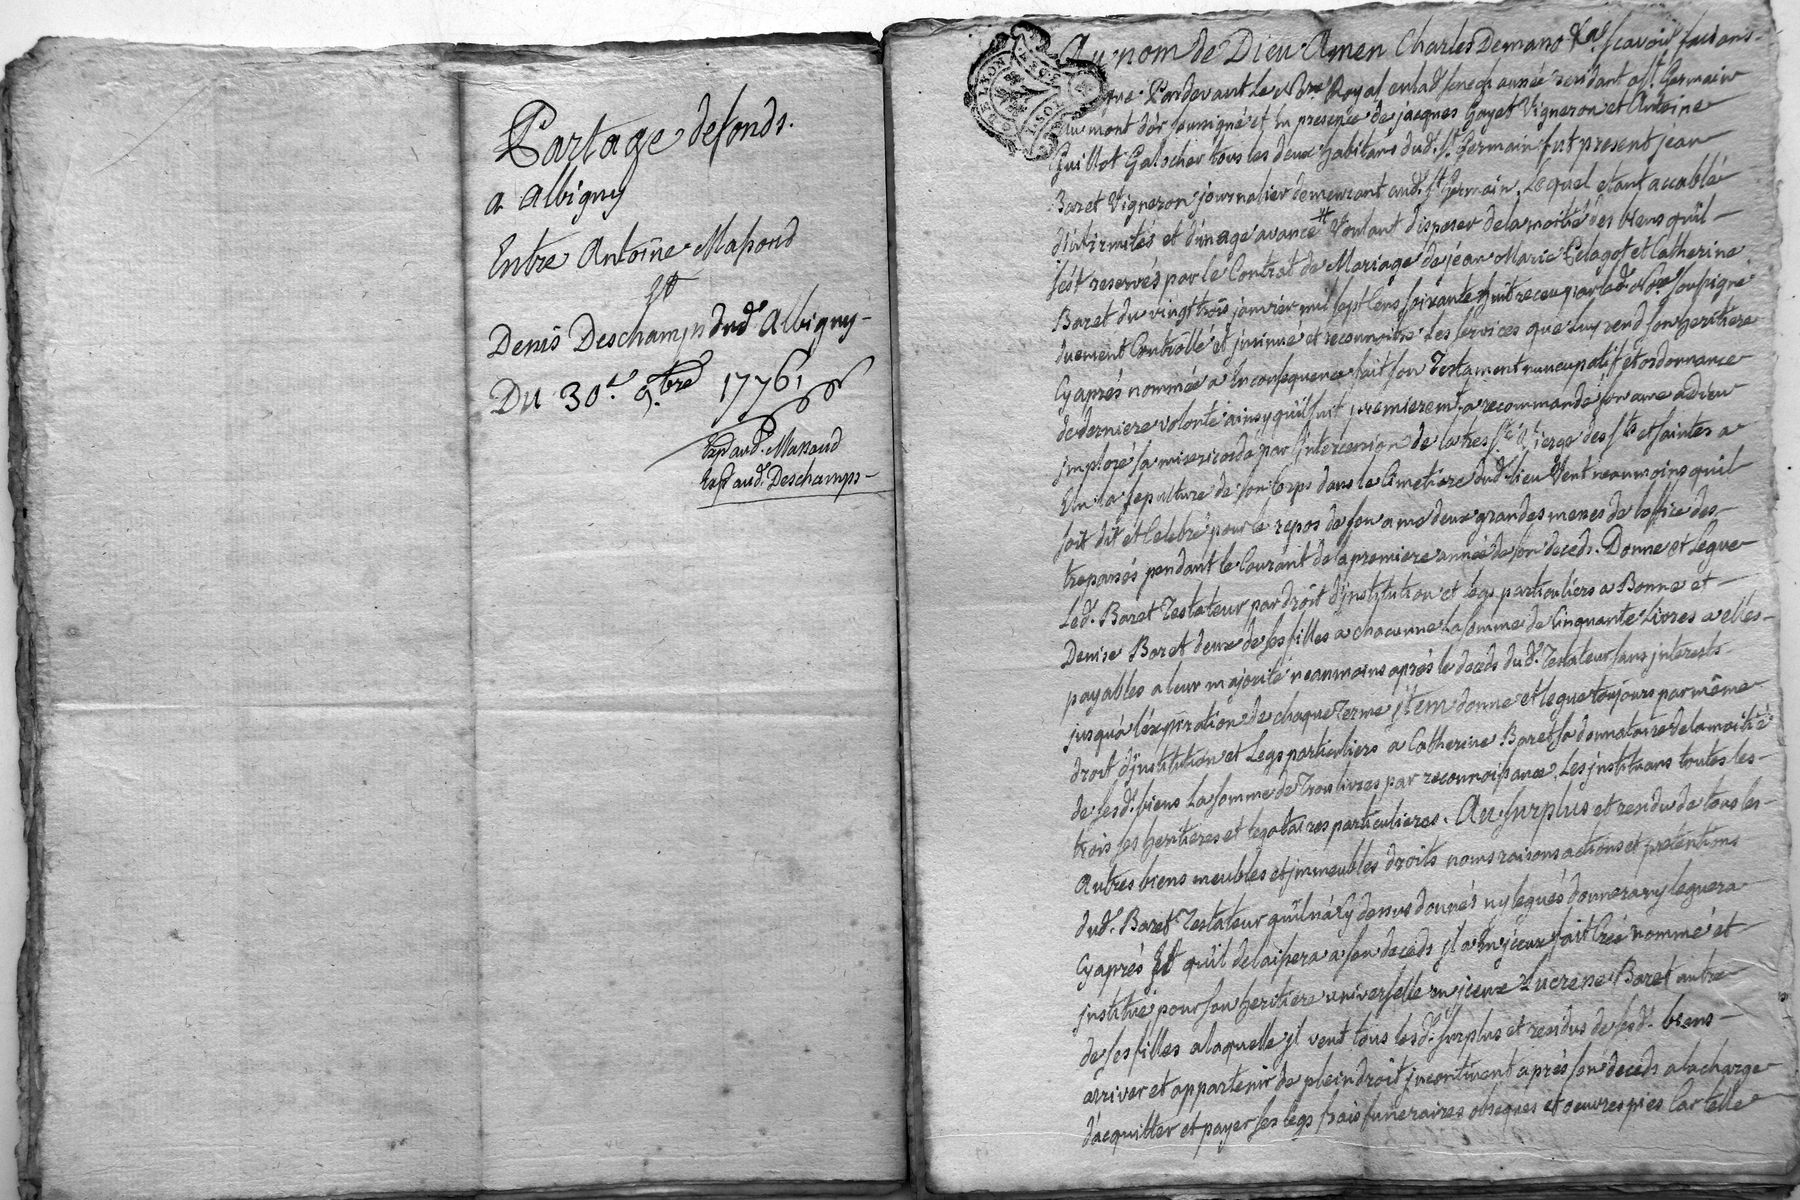 Partage de fonds.
a Albigny
Entre Antoine Massoud
Et
Denis Deschamps dud. Albigny
Du 30e. 9.bre 1776
Exp aud. Massoud
Exp aud. Deschamps
Au nom de Dieu Amen Charles Demano scavoir faisons
que Pardevant le no.re Royal en lad. senechaussée residant a St. Germain
au mont d'or soussigné et en presence de jacques Gayet Vigneron et Antoine
Guillot tous les deux habitans dud. St. Germain fut present jean
Baret Vigneron journalier demeurant aud. St. Germain, Lequel etant accablé
d'infirmités et d'un age avancé Voulant disposer de la moitié des biens qu'il
s'est reservés par le Contrat de Mariage de jean Marie Pelagot et Catherine
Baret du vingt trois janvier mil sept cens soixante huit receu par led. No.re soussigné
duement Controllé et jnsinué et reconnoitre les services que luy rend son heritiere
cy aprés nommée a en consequence fait son Testament nuncupatif et ordonnance
de derniere volonté ainsy qu'il suit premierem.t a recommandé son ame a Dieu
jmploré sa misericorde par l'intercession de la tres S.te Vierge des S.ts et saintes a
Elu la sepulture de son corps dans le Cimetiere dud. lieu Veut neanmoins qu'il
soit dit et celebré pour le repos de son ame deux grandes messes de l'office des
trepassés pendant le Courant de la premiere année de son deceds. Donne et Legue
Led. Baret Testateur par droit d'jnstitution et legs particuliers a Bonne et
Denise Baret deux de ses filles a chacunne La somme de Cinquante Livres a elles
payables a leur majorité neanmoins aprés le deceds dud. Testateur sans jnterests
jusqu'a l'expiration de chaque Terme jtem donne et legue toujours par même
droit d'jnstitution et Legs particuliers a Catherine Baret sa donnataire de la moitié
de sesd. biens La somme de Trois livres par reconnoissance. Les jnstituans toutes les
trois ses heritieres et legataires particulieres. Au surplus et residu de tous les
Autres biens meubles et jmmeubles droits noms raisons actions et pretentions
dud. Baret Testateur qu'il n'a Cy dessus donnés ny legués donnera ny leguera
Cy aprés Et qu'il delaissera a son deceds jl a en jceux fait créé nommé et
jnstitué pour son heritiere universelle en jceux Lucresse Baret autre
de ses filles a laquelle jl veut tous lesd. surplus et residus de sesd. biens
arriver et appartenir de plein droit jncontinent aprés son deceds a la charge
d'acquitter et payer ses legs frais funeraires obseques et oeuvres pies Car telle